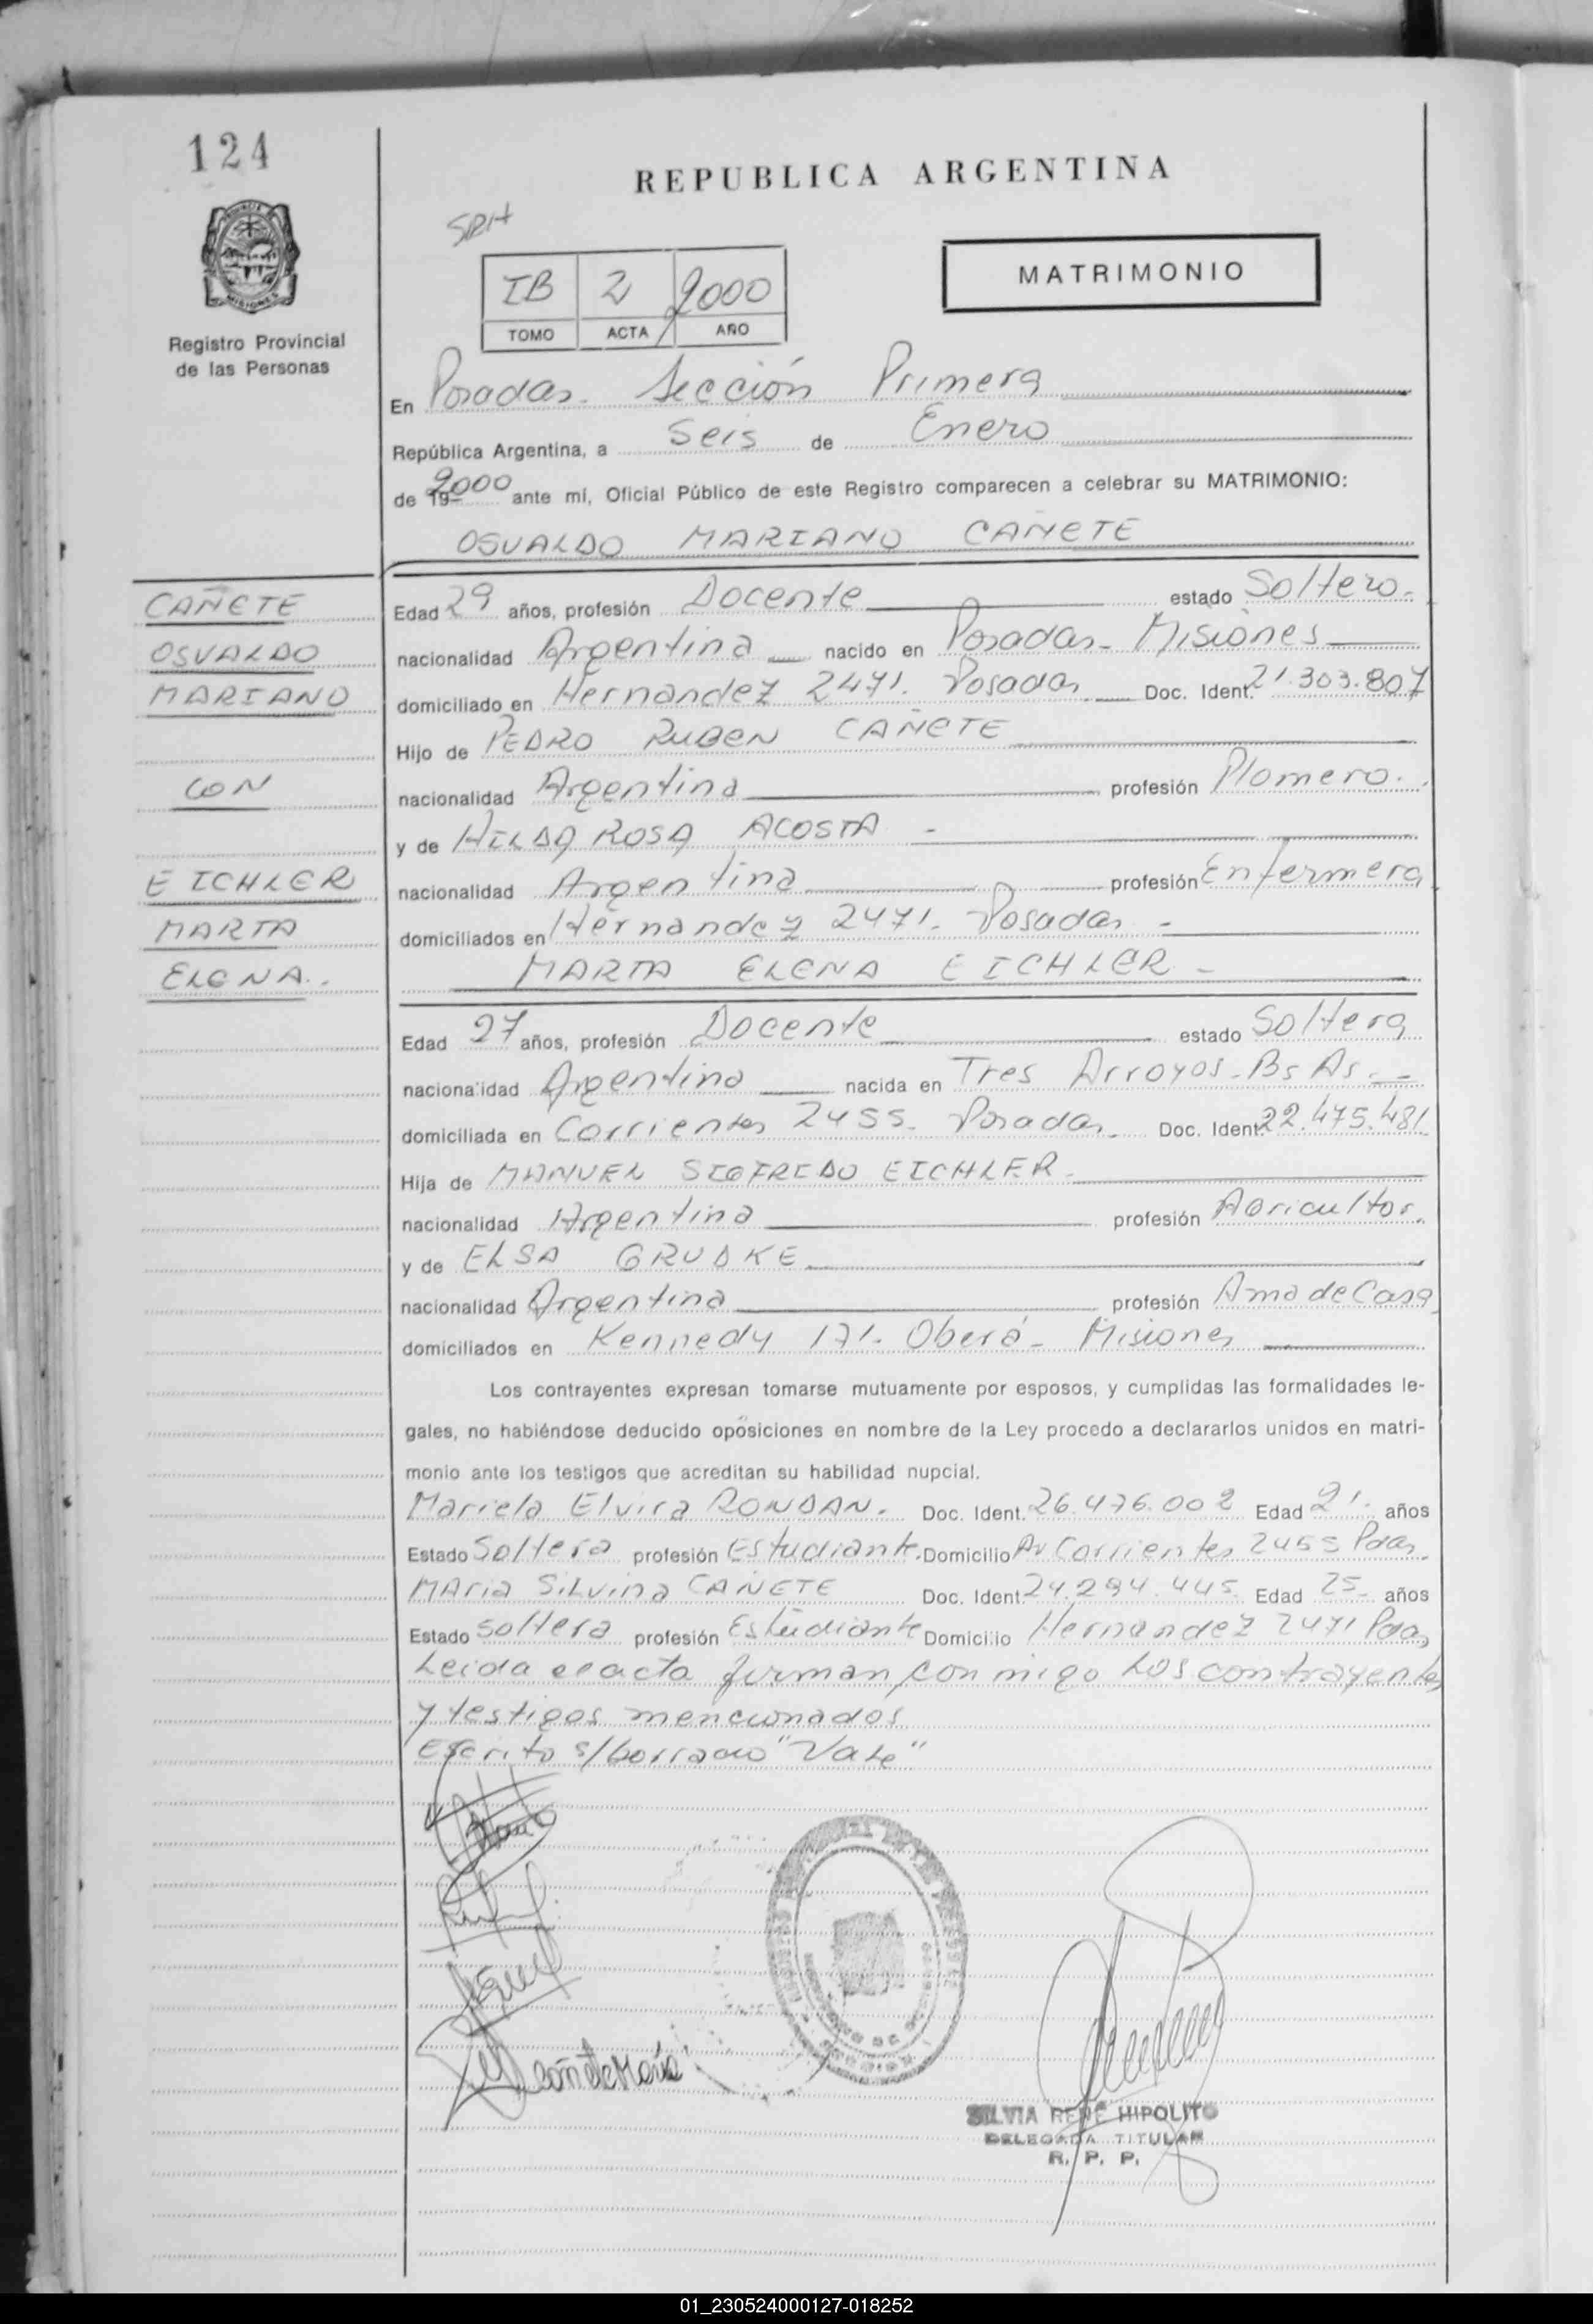 124
REPUBLICA ARGENTINA
SRH
PROVINCIA DE
MISIONES
Registro Provincial
de las Personas
MATRIMONIO
IB 2 2000
TOMO ACTA AÑO
En Posadas. Sección Primera
República Argentina, a Seis de Enero
de 19 2000 ante mi, Oficial Público de este Registro comparecen a celebrar su MATRIMONIO:
OSVALDO MARIANO CAÑETE
CAÑETE
OSVALDO
MARIANO
CON
EICHLER
MARTA
ELENA.
Edad 29 años, profesión Docente estado Soltero.
nacionalidad Argentina nacido en Posadas - Misiones
domiciliado en Hernandez 2471. Posadas Doc. Ident. 21.303.807
Hijo de PEDRO RUBEN CAÑETE
nacionalidad Argentina profesión Plomero.
y de HILDA ROSA ACOSTA -
nacionalidad Argentina profesión Enfermera
domiciliados en Hernandez 2471. Posadas -
MARTA ELENA EICHLER -
Edad 27 años, profesión Docente estado Soltera
nacionalidad Argentina nacida en Tres Arroyos - Bs As. -
domiciliada en Corrientes 2455. Posadas. Doc. Ident. 22.475.481
Hija de MANUEL SIGFREDO EICHLER -
nacionalidad Argentina profesión Agricultor.
y de ELSA GRUDKE
nacionalidad Argentina profesión Ama de Casa
domiciliados en Kennedy 171. Oberá - Misiones
Los contrayentes expresan tomarse mutuamente por esposos, y cumplidas las formalidades le-
gales, no habiéndose deducido oposiciones en nombre de la Ley procedo a declararlos unidos en matri-
monio ante los testigos que acreditan su habilidad nupcial.
Mariela Elvira RONDAN. Doc. Ident. 26.476.002 Edad 21. años
Estado Soltera profesión Estudiante. Domicilio Av Corrientes 2455 Pdas.
MAria Silvina CAÑETE Doc. Ident. 24.294.445 Edad 25 años
Estado soltera profesión Estudiante Domicilio Hernandez 2471 Pdas
Leida el acta firman conmigo Los contrayentes
y testigos mencionados
Escrito s/borrado "Vale"
Cañete María
SILVIA RENE HIPOLITO
DELEGADA TITULAR
R. P. P.
01_230524000127-018252